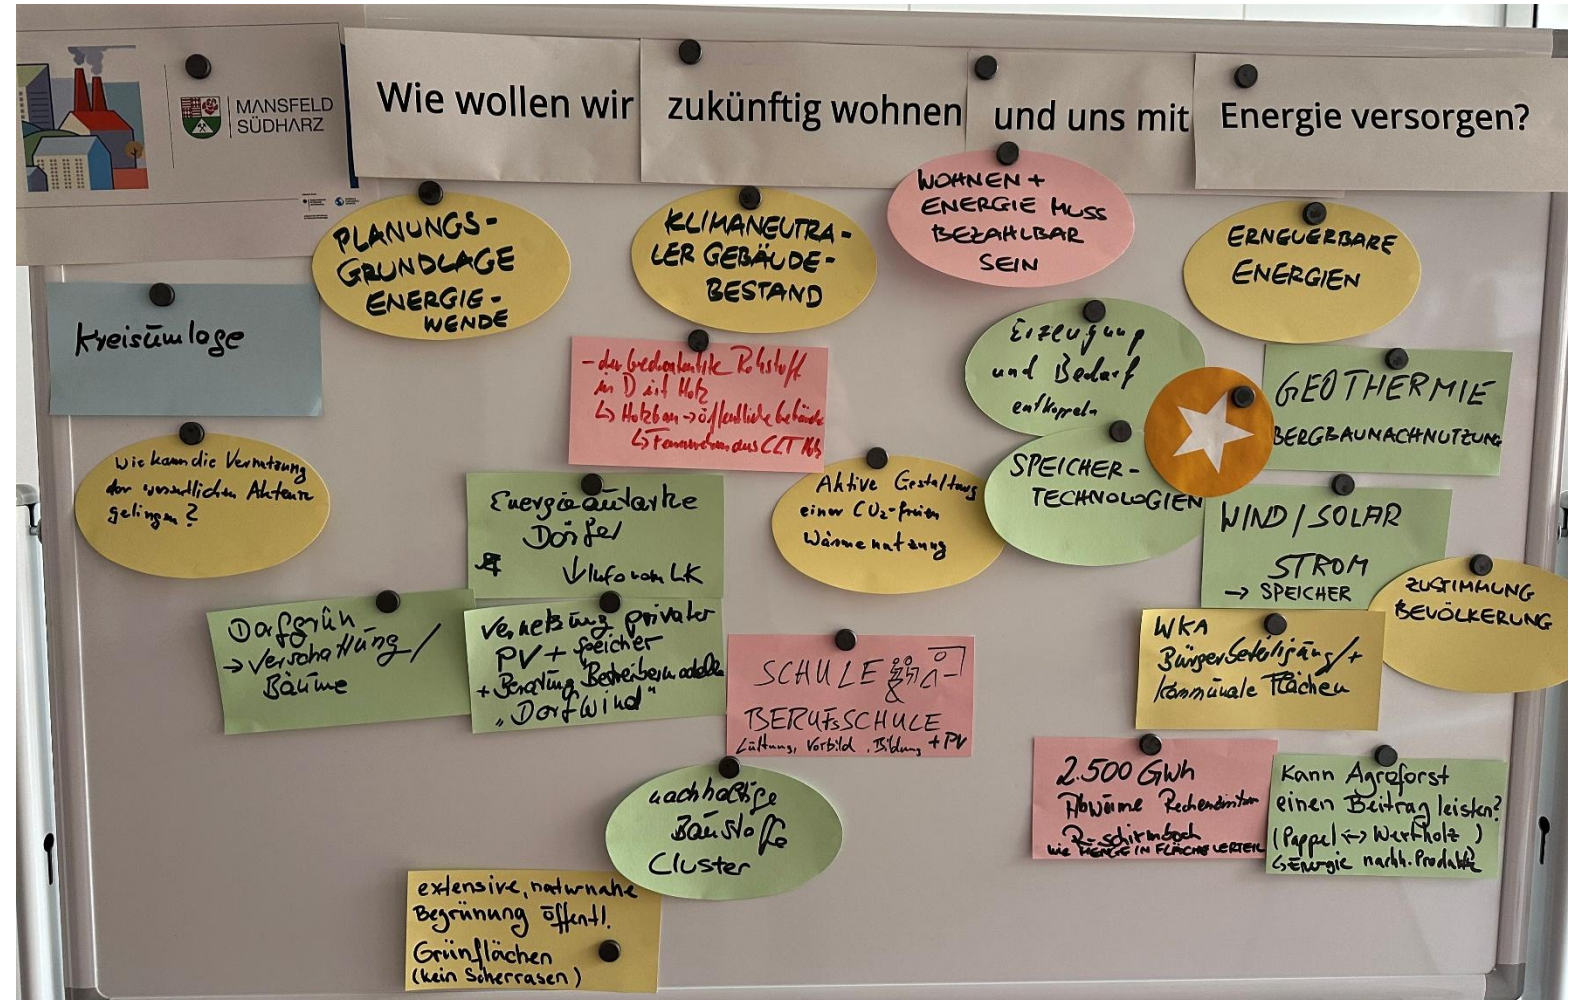 MANSFELD
SÜDHARZ
Wie wollen wir zukünftig wohnen und uns mit Energie versorgen?
PLANUNGS-
GRUNDLAGE
ENERGIE-
WENDE
KLIMANEUTRA-
LER GEBÄUDE-
BESTAND
WOHNEN +
ENERGIE MUSS
BEZAHLBAR
SEIN
ERNEUERBARE
ENERGIEN
Kreisumlage
- der bedeutendste Rohstoff
in D ist Holz
↳ Holzbau → öffentliche Gebäude
↳ aus CLT
Erzeugung
und Bedarf
entkoppeln
GEOTHERMIE
BERGBAUNACHNUTZUNG
Wie kann die Vernetzung
der wesentlichen Akteure
gelingen?
Energieautarke
Dörfer
↓ Info vom LK
Aktive Gestaltung
einer CO₂-freien
Wärmenutzung
SPEICHER-
TECHNOLOGIEN
WIND/SOLAR
STROM
→ SPEICHER
ZUSTIMMUNG
BEVÖLKERUNG
Dorfgrün
→ Verschattung/
Bäume
Vernetzung privater
PV + Speicher
+ Beratung Betreibermodelle
"Dorfwind"
SCHULE
BERUFSSCHULE
Lüftung, Vorbild, Bildung + PV
WKA
Bürgerbeteiligung/+
kommunale Flächen
2.500 GWh
Abwärme Rechenzentren
WIE MENGE IN FLÄCHE VERTEIL
Kann Agroforst
einen Beitrag leisten?
(Pappel <-> Wertholz)
↳ Energie nachh. Produkte
nachhaltige
Baustoffe
Cluster
extensive, naturnahe
Begrünung öffentl.
Grünflächen
(kein Scherrasen)